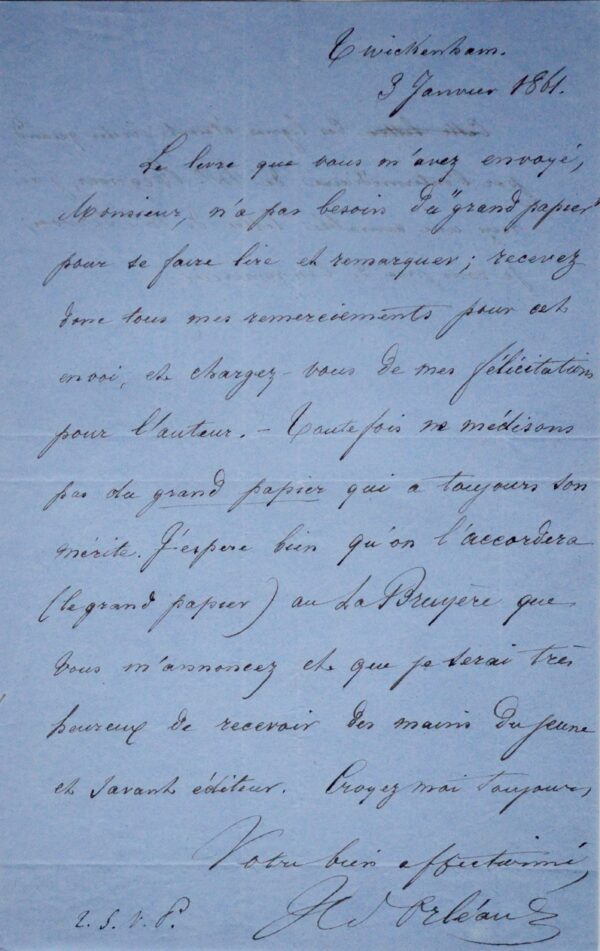 Twickenham.
3 Janvier 1861.
Le livre que vous m'avez envoyé,
Monsieur, n'a pas besoin du "grand papier"
pour se faire lire et remarquer ; recevez
donc tous mes remerciements pour cet
envoi, et chargez-vous de mes félicitations
pour l'auteur. — Toutefois ne médisons
pas du grand papier qui a toujours son
mérite. J'espere bien qu'on l'accordera
(le grand papier) au La Bruyère que
vous m'annoncez et que je serai très
heureux de recevoir des mains du jeune
et savant éditeur. Croyez moi toujours,
Votre bien affectionné,
H d'Orléans
T. S. V. P.